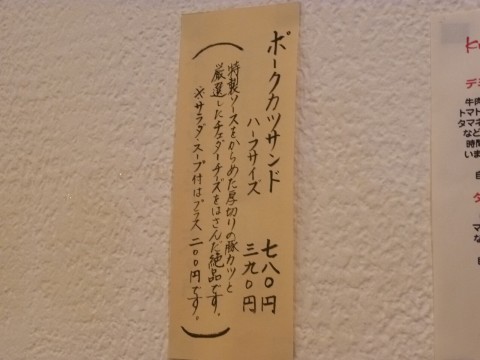 ポークカツサンド 七八〇円
ハーフサイズ 三九〇円
(特製ソースをからめた厚切りの豚カツと
厳選したチェダーチーズをはさんだ絶品です。
※サラダ・スープ付はプラス二〇〇円です。)
牛肉
トマト
タマネ
など
時間
いま